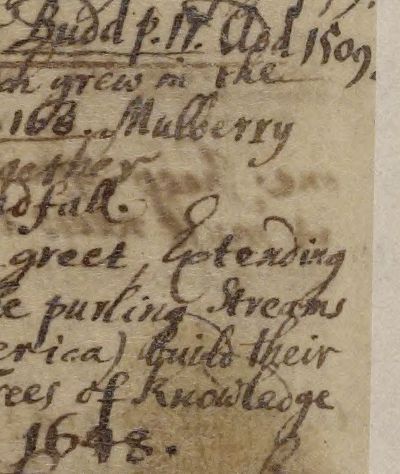 Budd p. 17. Add 1509.
grew in the
168. Mulberry
gether
dfall.
greet, Extending
purling Streams
erica) build their
rees of Knowledge
1648.